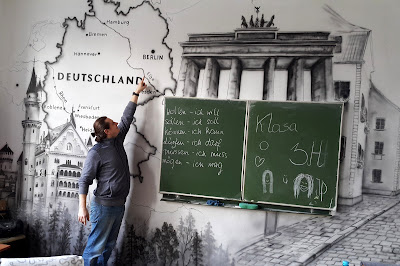 Hamburg
Bremen
Hannover
BERLIN
DEUTSCHLAND
Koblenz
Frankfurt
Wiesbaden
wollen - ich will
sollen - ich soll
können - ich kann
dürfen - ich darf
müssen - ich muss
mögen - ich mag
Klasa
3H
ü